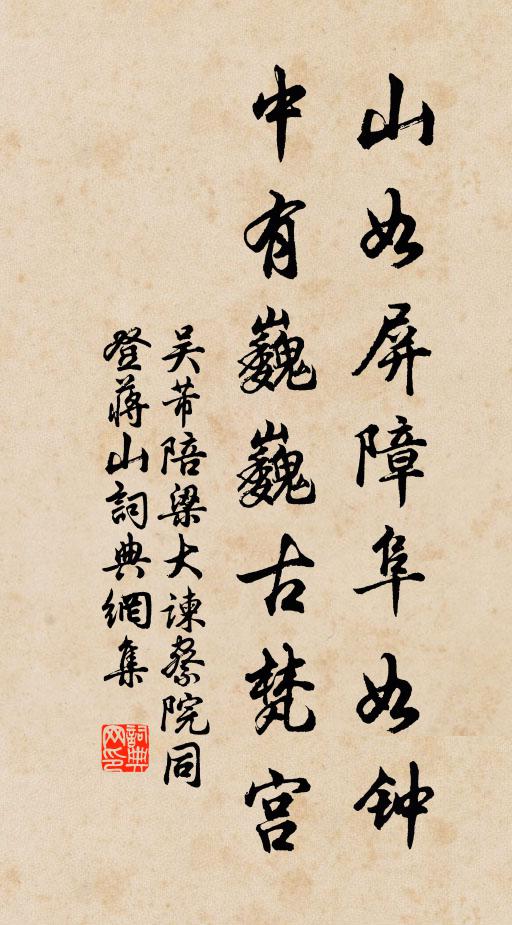 山如屏障阜如钟
中有巍巍古梵宫
吴芾陪梁大谏察院同
登蒋山詞典網集
詞典网印